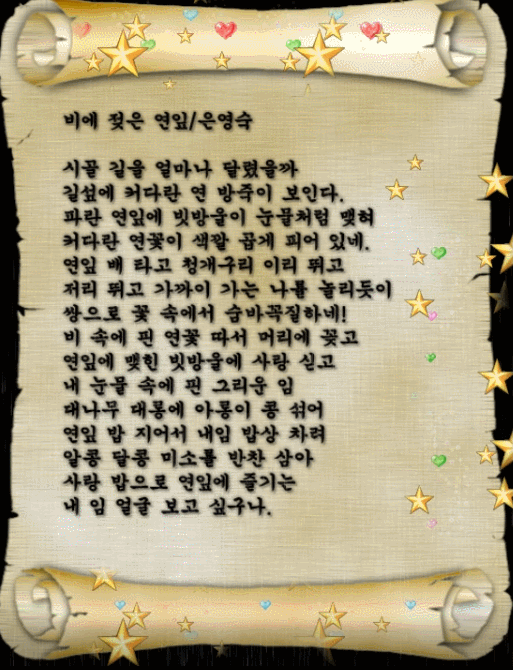 비에 젖은 연잎/은영숙
시골 길을 얼마나 달렸을까
길섶에 커다란 연 방죽이 보인다.
파란 연잎에 빗방울이 눈물처럼 맺혀
커다란 연꽃이 색깔 곱게 피어 있네.
연잎 배 타고 청개구리 이리 뛰고
저리 뛰고 가까이 가는 나를 놀리듯이
쌍으로 꽃 속에서 숨바꼭질하네!
비 속에 핀 연꽃 따서 머리에 꽂고
연잎에 맺힌 빗방울에 사랑 싣고
내 눈물 속에 핀 그리운 임
대나무 대롱에 아롱이 콩 섞어
연잎 밥 지어서 내임 밥상 차려
알콩 달콩 미소를 반찬 삼아
사랑 밥으로 연잎에 즐기는
내 임 얼굴 보고 싶구나.